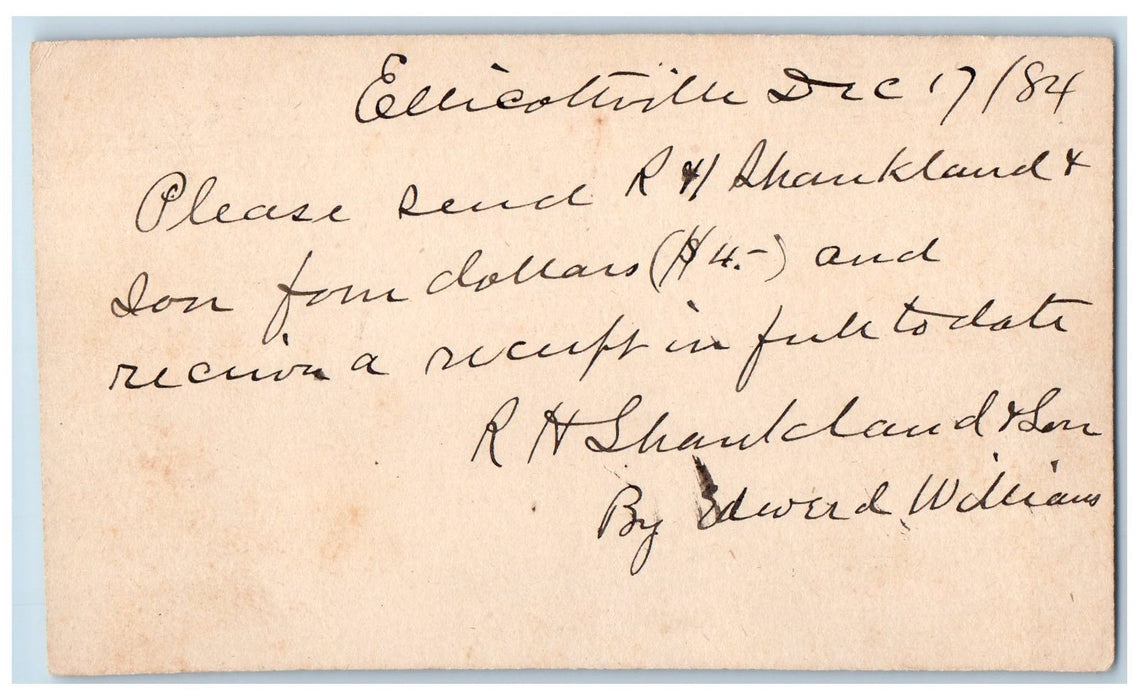 Ellicottville Dec 17/84
Please send R H Shankland &
Son four dollars ($4.-) and
receive a receipt in full to date
R H Shankland & Son
By Edward Williams